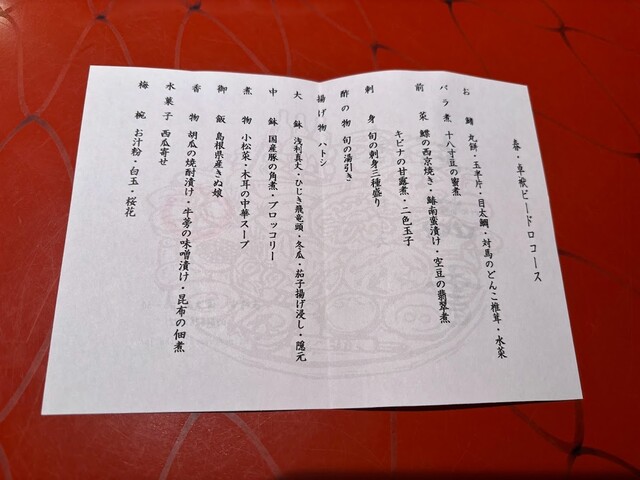 春・卓袱ビードロコース
お鰭 丸餅・玉子半片・目太鯛・対馬のどんこ椎茸・水菜
バラ煮 十八寸豆の蜜煮
前菜 鰹の西京焼き・鯵南蛮漬け・空豆の翡翠煮
キビナの甘露煮・二色玉子
刺身 旬の刺身三種盛り
酢の物 旬の湯引き
揚げ物 ハトシ
大鉢 浅利真丈・ひじき飛竜頭・冬瓜・茄子揚げ浸し・隠元
中鉢 国産豚の角煮・ブロッコリー
煮物 小松菜・木耳の中華スープ
御飯 島根県産きぬ娘
香物 胡瓜の焼酎漬け・牛蒡の味噌漬け・昆布の佃煮
水菓子 西瓜寄せ
梅椀 お汁粉・白玉・桜花